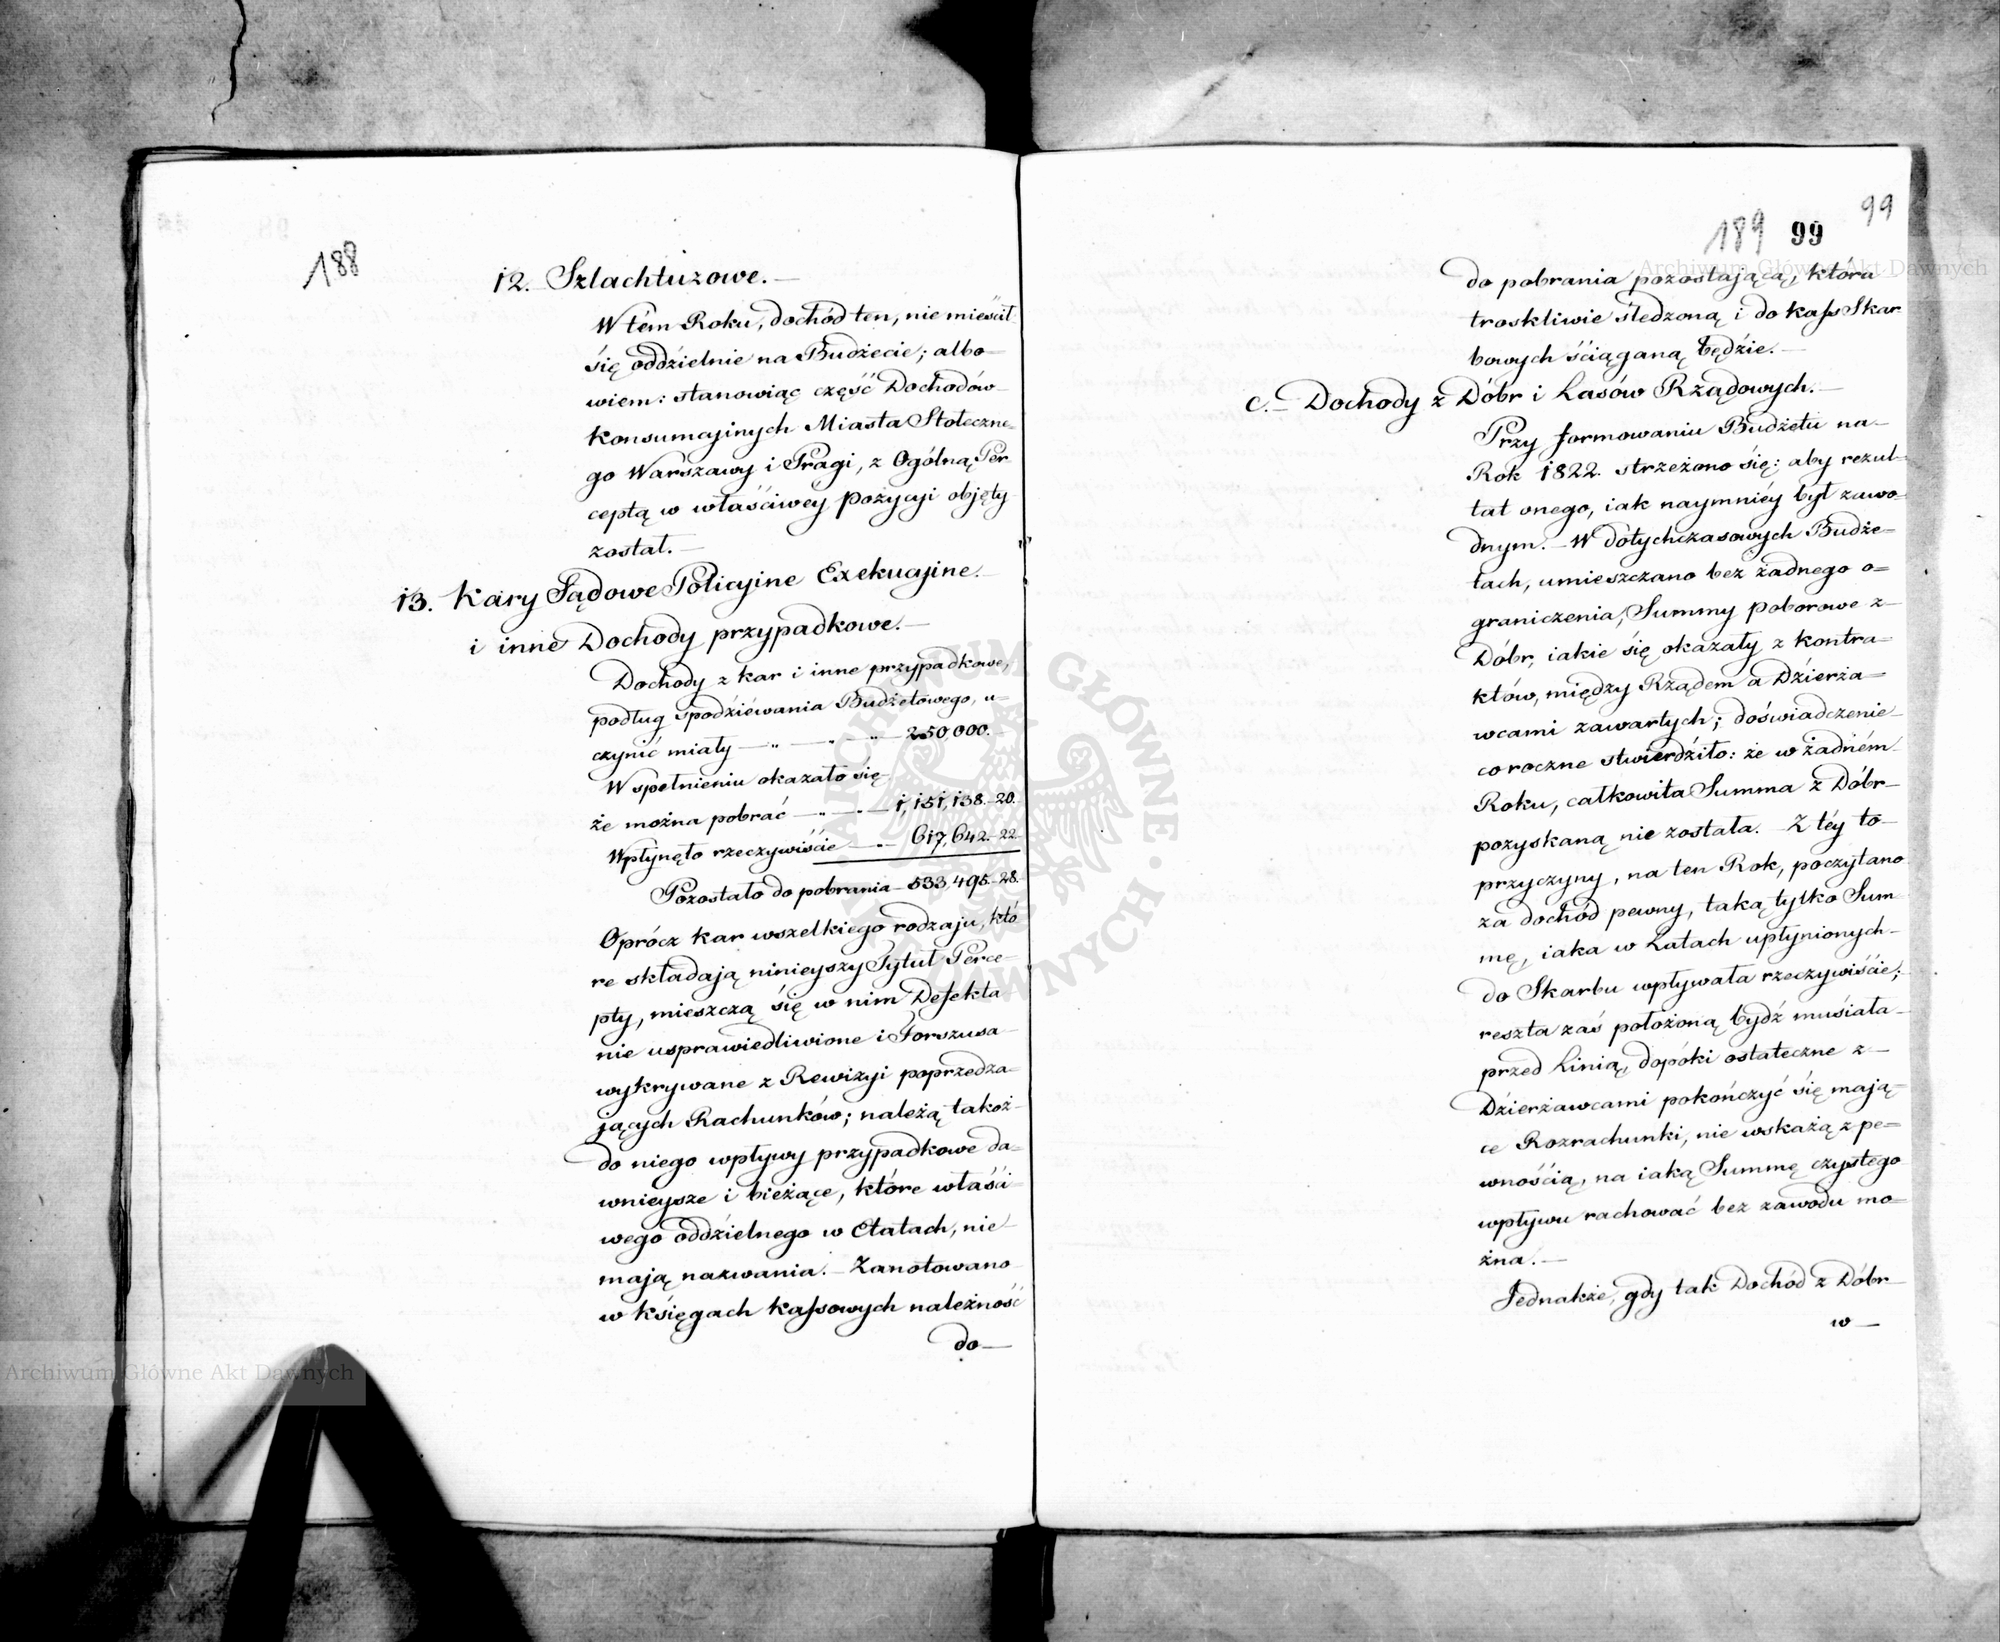 188
12. Szlachtuzowe. —
W tém Roku, dochód ten, nie mieścił
się oddzielnie na Budżecie; albo-
wiem: stanowiąc część Dochodów
konsumcyinych Miasta Stołeczne-
go Warszawy i Pragi, z Ogólną Per
ceptą w właściwey pozycyi objęty
został. —
13. Kary Sądowe Policyine Exekucyine.
i inne Dochody przypadkowe. —
Dochody z kar i inne przypadkowe,
podług spodziéwania Budżetowego, u-
czynić miały — „ — „ — „ — 250,000.
W spełnieniu okazało się
że można pobrać — „ — „ — 1,151,138.-20.
Wpłynęło rzeczywiście — „ — 617,642.-22.
Pozostało do pobrania — 533,495.-28.
Oprócz kar wszelkiego rodzaju, któ
re składają ninieyszy Tytuł Perce-
pty, mieszczą się w nim Defekta
nie usprawiedliwione i Forszusa
wykrywane z Rewizyi poprzedza-
jących Rachunków; należą takoż
do niego wpływy przypadkowe da-
wnieysze i bieżące, które właści-
wego oddzielnego w Etatach, nie
mają nazwania. — Zanotowano
w księgach kassowych należność
do —
99
189 99
do pobrania pozostającą, która
troskliwie śledzoną i do kass Skar
bowych ściąganą będzie. —
C. — Dochody z Dóbr i Lasów Rządowych. —
Przy formowaniu Budżetu na
Rok 1822. strzeżono się: aby rezul-
tat onego, iak naymniéy był zawo-
dnym. — W dotychczasowych Budże-
tach, umieszczano bez żadnego o-
graniczenia, Summy poborowe z
Dóbr, iakie się okazały z kontra-
któw, między Rządem a Dzierża-
wcami zawartych; doświadczenie
coroczne stwierdziło: że w żadném
Roku, całkowita Summa z Dóbr
pozyskaną nie została. — Z téy to
przyczyny, na ten Rok, poczytano
za dochód pewny, taką tylko Sum
mę, iaka w Latach upłynionych
do Skarbu wpływała rzeczywiście;
reszta zaś położoną bydź musiała
przed Linią, dopóki ostateczne z
Dzierżawcami pokończyć się mają-
ce Rozrachunki, nie wskażą z pe-
wnością, na iaką Summę czystego
wpływu rachować bez zawodu mo-
żna. —
Jednakże, gdy tak Dochód z Dóbr
w —
Archiwum Główne Akt Dawnych
Archiwum Główne Akt Dawnych
ARCHIWUM GŁÓWNE AKT DAWNYCH